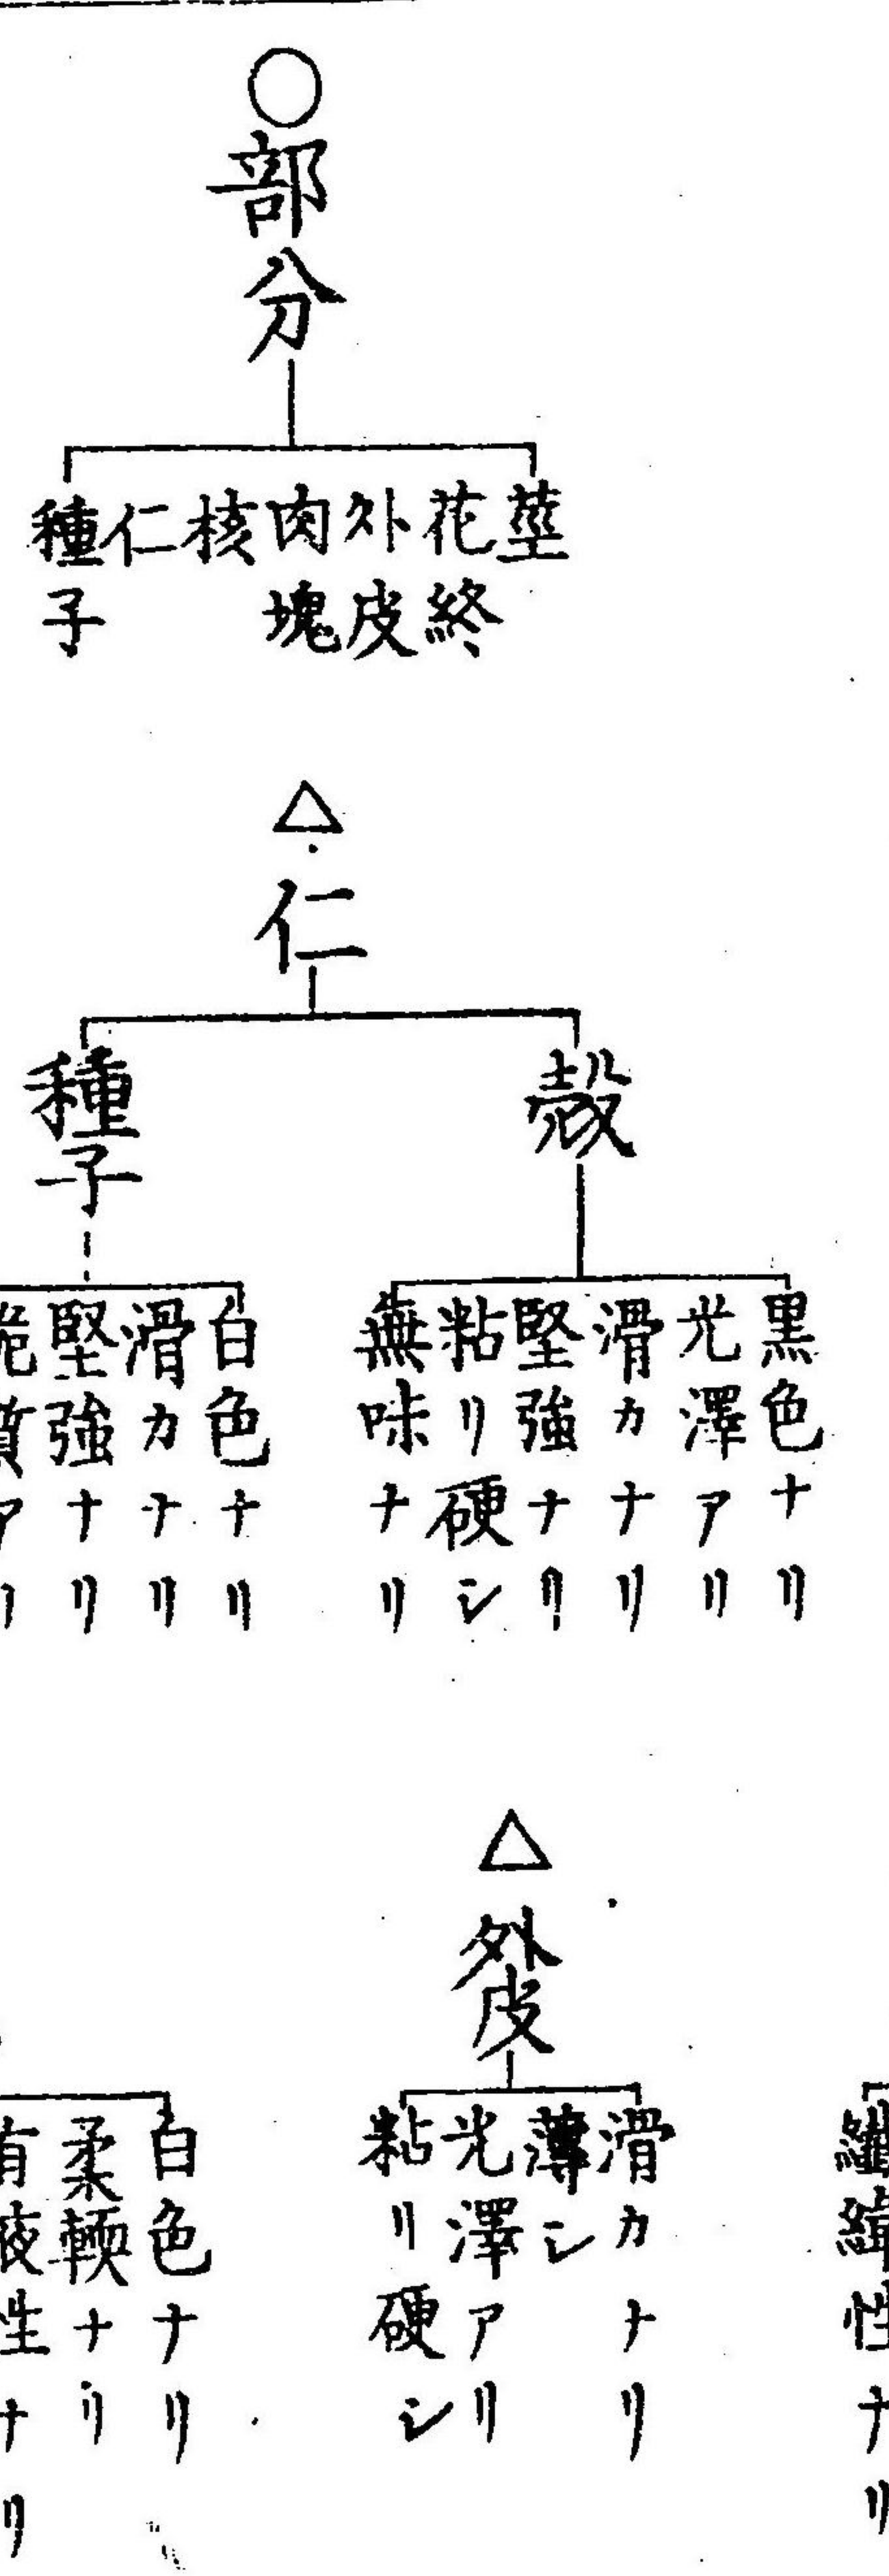 ○部分
莖
花終
外皮
肉塊
核
仁
種子
△仁
殻
黒色ナリ
光澤アリ
滑カナリ
堅強ナリ
粘リ硬シ
無味ナリ
種子
白色ナリ
滑カナリ
堅強ナリ
脆質アリ
△外皮
滑カナリ
薄シ
光澤アリ
粘リ硬シ
纎緯性ナリ
白色ナリ
柔輭ナリ
有液性ナリ